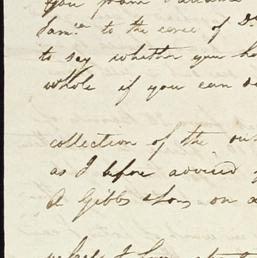 you from
Jamca to the care of Dr
to say whether you ha
whole if you can
collection of the
as I before advised
A Gibbs & Sons on a